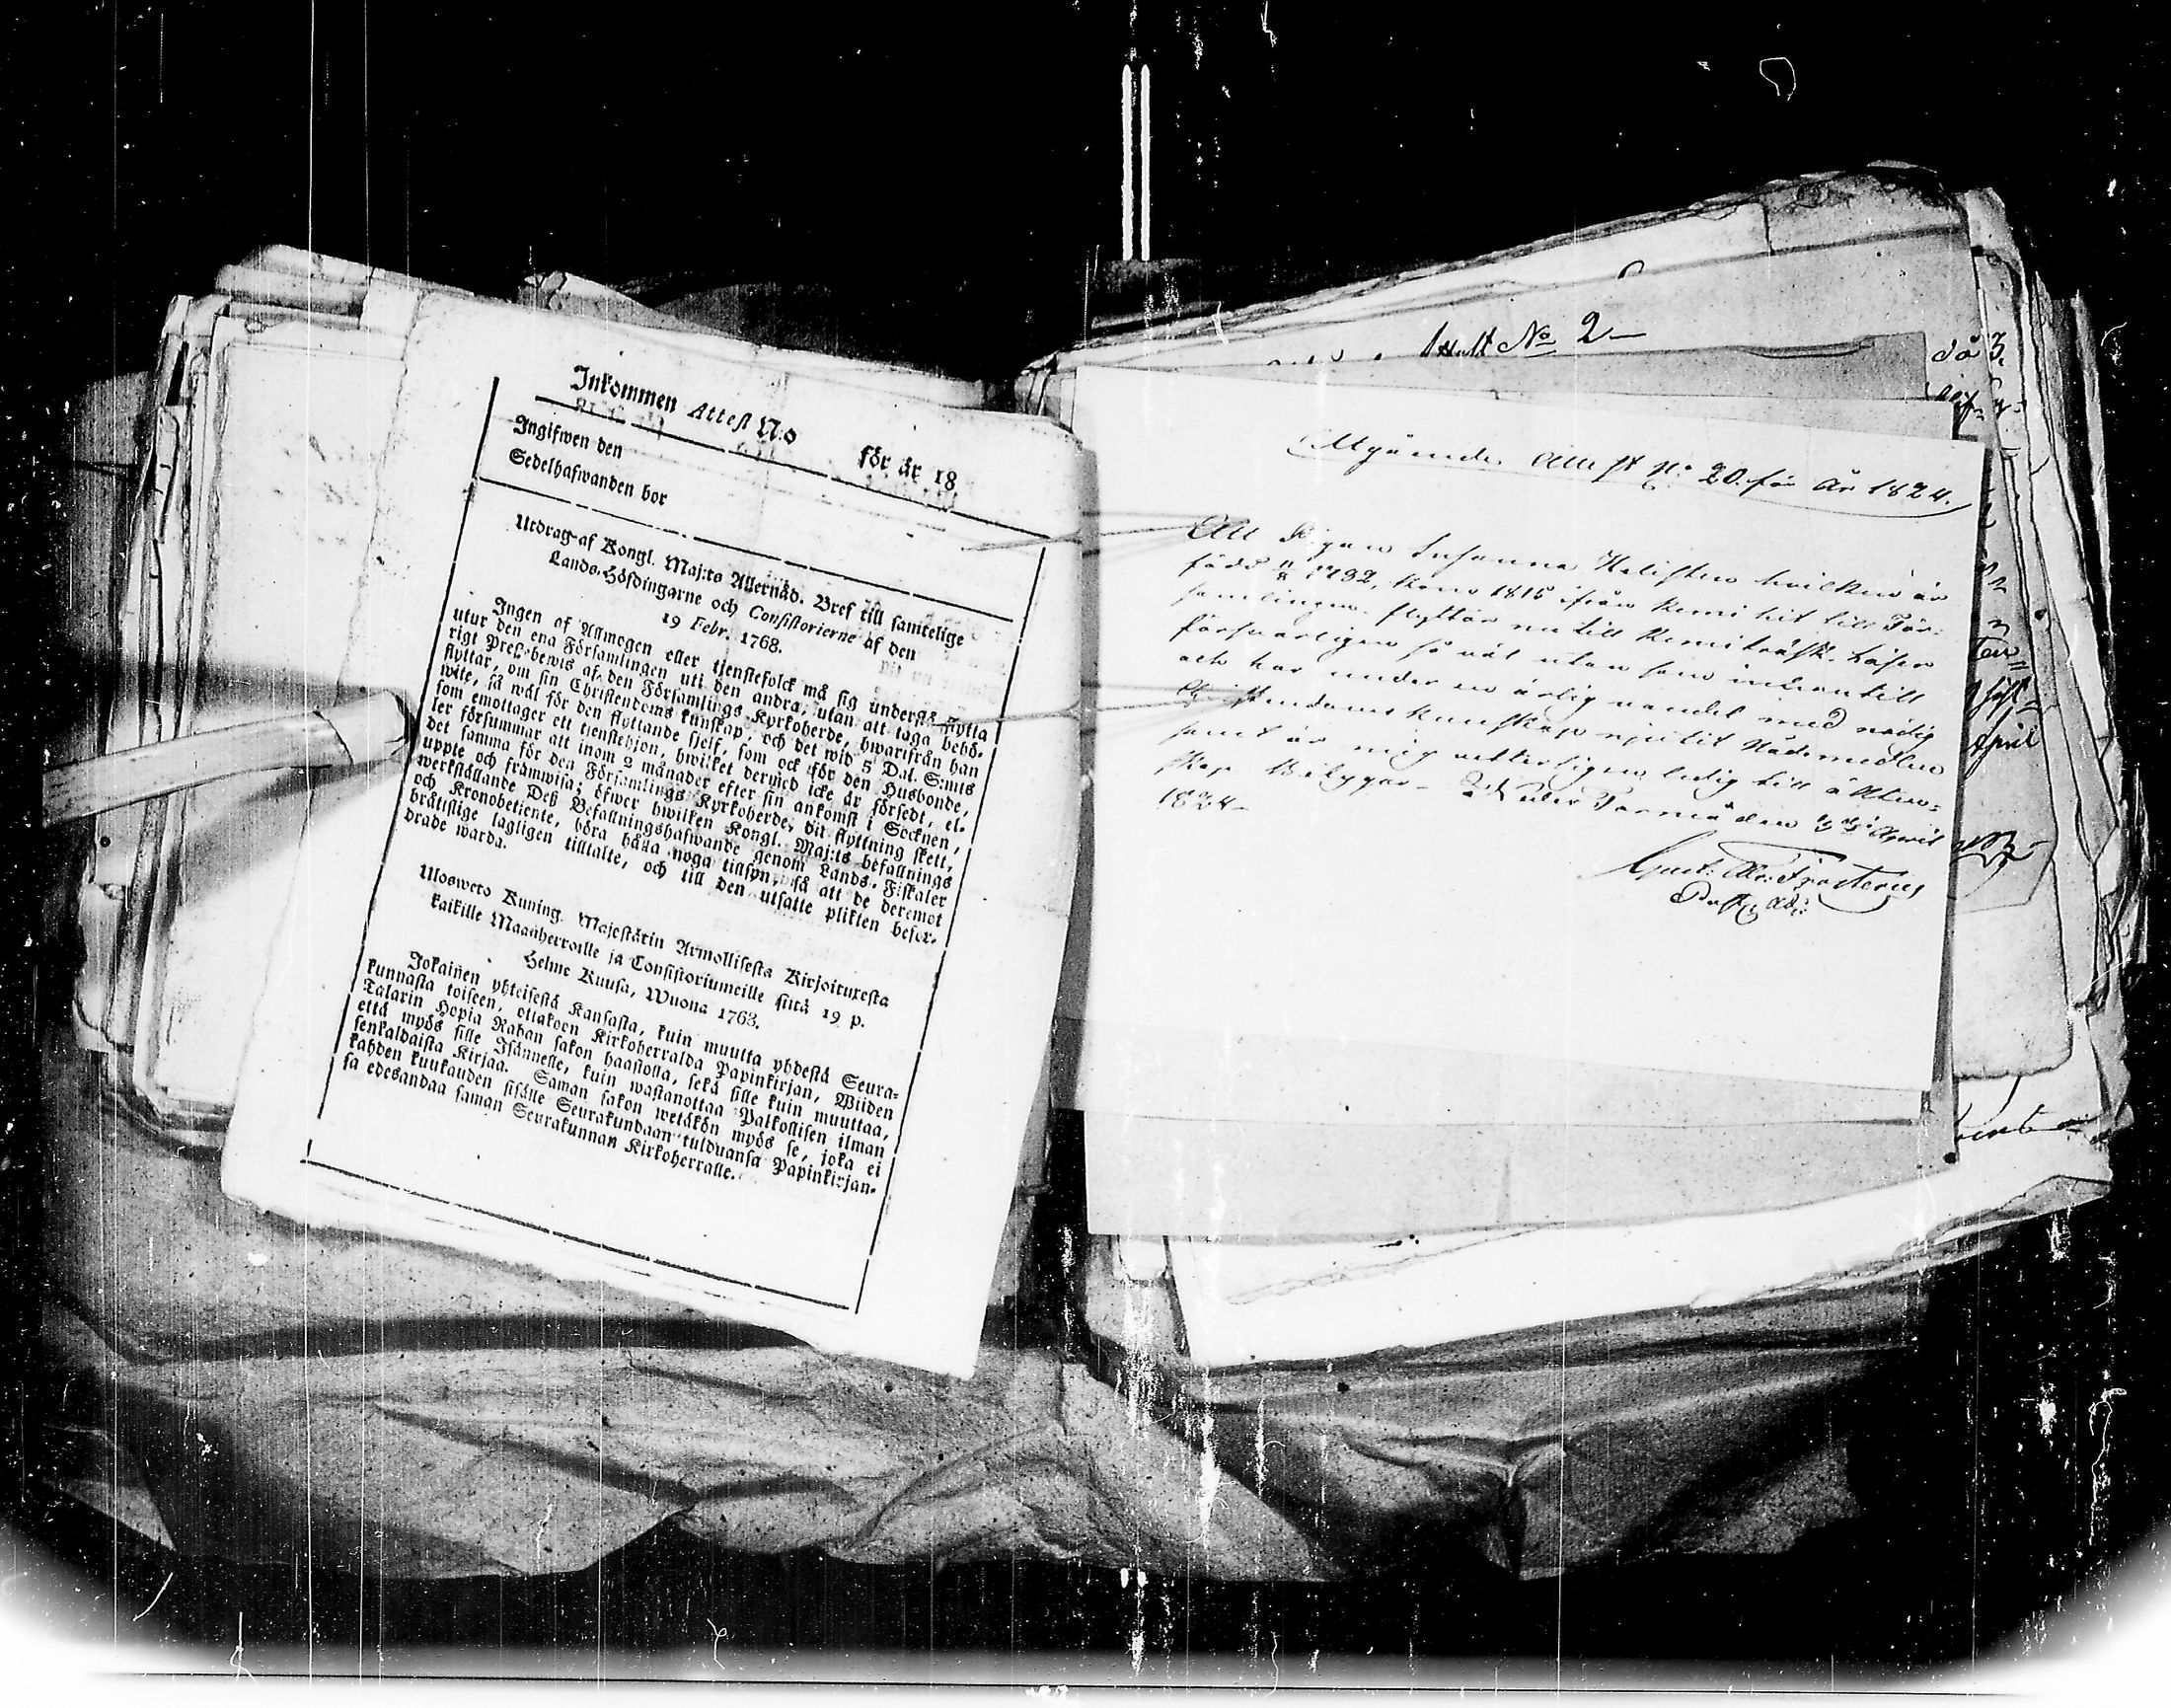 Inkommen Attest N:o för år 18
Ingifwen den
Sedelhafwanden bor
Utdrag af Kongl. Maj:ts Allernåd. Bref till samtelige
Lands-Höfdingarne och Consistorierne af den
19 Febr. 1768.
Ingen af Allmogen eller tjenstefolck må sig understå flytta
utur den ena Församlingen uti den andra, utan att taga behö-
rigt Prest-bewis af den Församlings Kyrkoherde, hwarifrån han
flyttar, om sin Christendoms kunskap, och det wid 5 Dal. S:mts
wite, så wäl för den flyttande sjelf, som ock för den Husbonde,
som emottager ett tjenstehjon, hwilket dermed icke är försedt, el-
ler försummar att inom 2 månader efter sin ankomst i Socknen,
det samma för den Församlings Kyrkoherde, dit flyttning skett,
uppte och framwisa; öfwer hwilken Kongl. Maj:ts befallnings
werkställande Deß Befallningshafwande genom Lands-Fiskaler
och Kronobetjente, böra hålla noga tillsyn, så att de deremot
bråttslige lagligen tilltalte, och till den utsatte plikten befor-
drade warda.
Ulosweto Kuning. Majestätin Armollisesta Kirjoituxesta
kaikille Maanherroille ja Consistoriumeille siitä 19 p.
Helme Kuusa, Wuona 1768.
Jokainen yhteisestä Kansasta, kuin muutta yhdestä Seura-
kunnasta toiseen, ottakoon Kirkoherralda Papinkirjan, Wiiden
Talarin Hopia Rahan sakon haastolla, sekä sille kuin muuttaa,
että myös sille Isännelle, kuin wastanottaa Palkollisen ilman
senkaldaista Kirjaa. Saman sakon wetäkön myös se, joka ei
kahden kuukauden sisälle Seurakundaan tulduansa Papinkirjan-
sa edesandaa saman Seurakunnan Kirkoherralle.
Attest No 2
då 3.
Utgående Attest N:o 20. för år 1824.
Att Pigan Susanna Helisten hvilken är
född 1792, kom 1815 ifrån Kemi hit till För-
samlingen flyttar nu till Kemiträsk. Läser
försvarligen så väl utan som innantill
och har under en ärlig vandel med nödig
Christendoms kunskap njutit Nådemedlen
samt är mig vetterligen ledig till äkten-
skap. Betygar April
1824
April